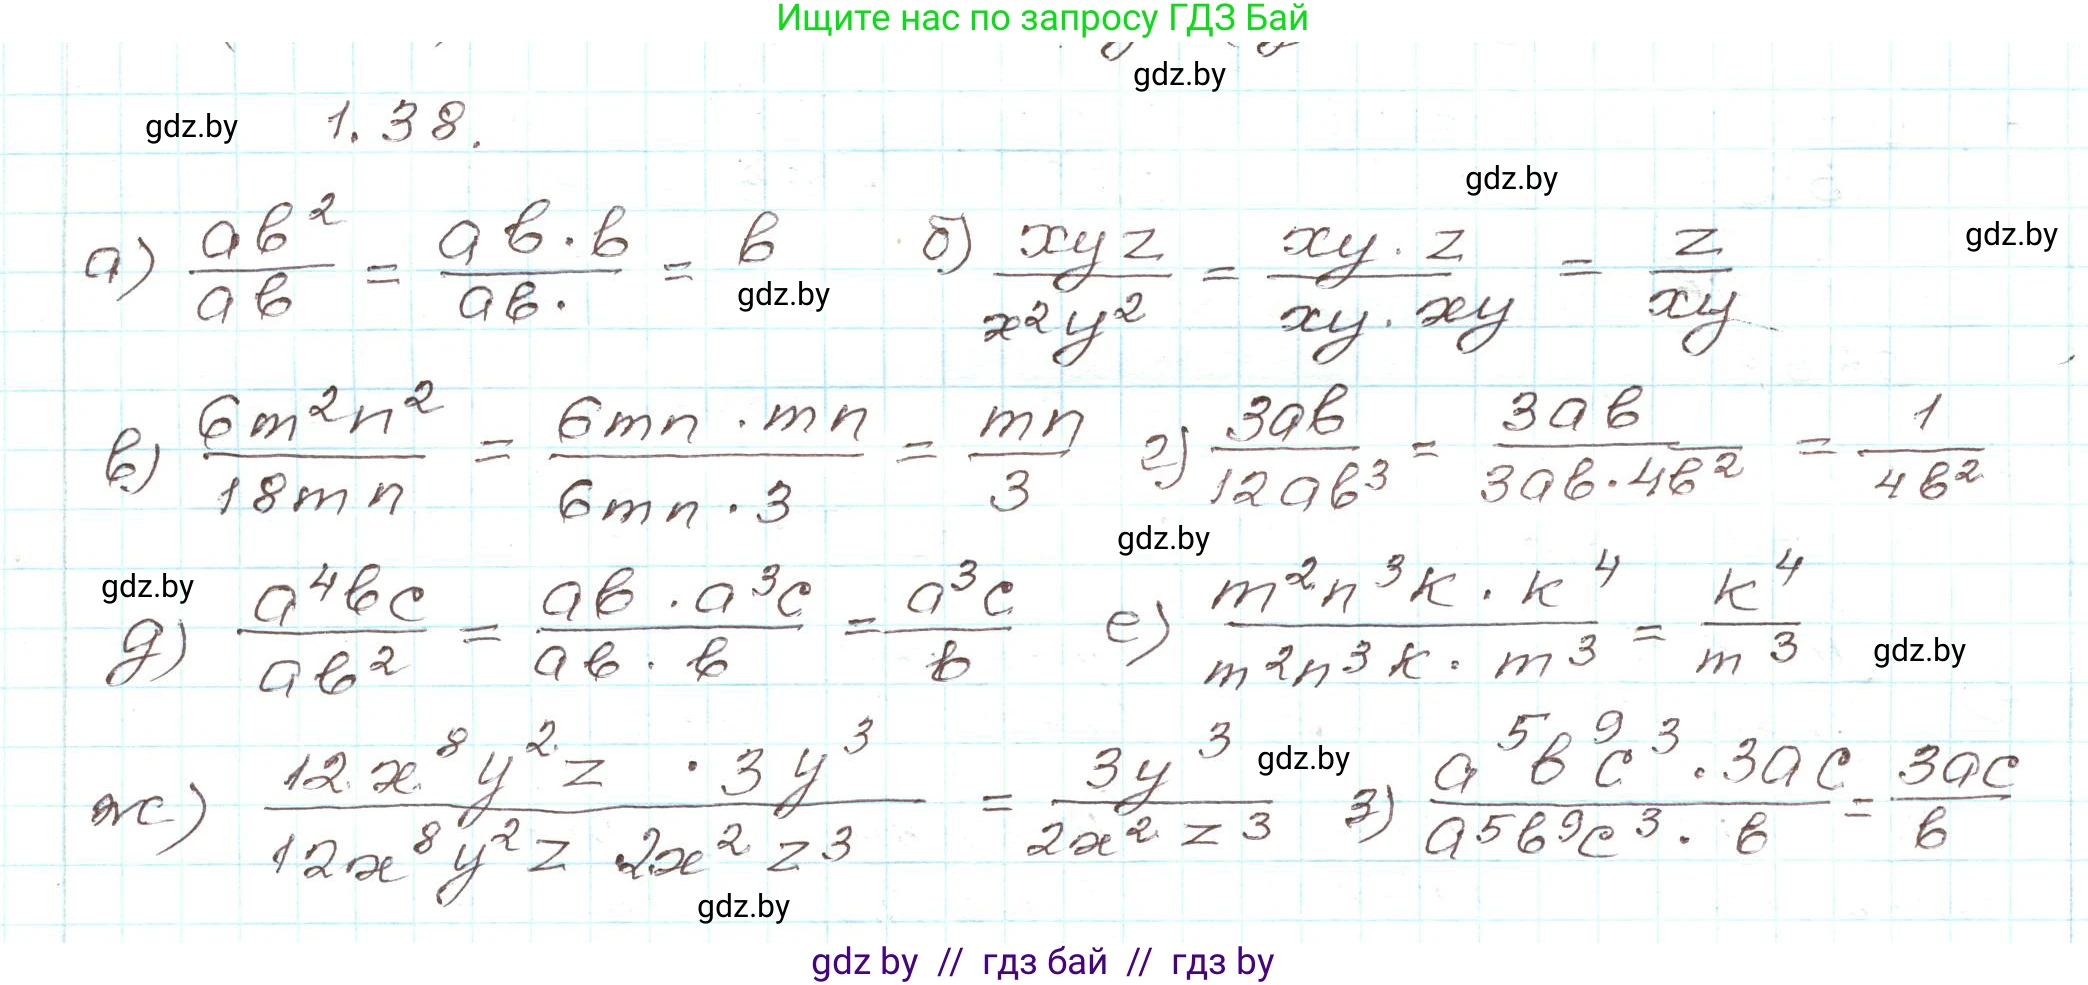 Ищите нас по запросу ГДЗ Бай
gdz.by
gdz.by 1.38.
gdz.by
gdz.by
а) ab²/ab = ab·b/ab· = b б) xyz/x²y² = xy·z/xy·xy = z/xy
gdz.by
в) 6m²n²/18mn = 6mn·mn/6mn·3 = mn/3 г) 3ab/12ab³ = 3ab/3ab·4b² = 1/4b²
gdz.by
gdz.by
д) a⁴bc/ab² = ab·a³c/ab·b = a³c/b е) m²n³k·k⁴/m²n³k·m³ = k⁴/m³
gdz.by
ж) 12x⁸y²z·3y³/12x⁸y²z·2x²z³ = 3y³/2x²z³ gdz.by з) a⁵b⁹c³·3ac/a⁵b⁹c³·b = 3ac/b
gdz.by
gdz by // гдз бай // гдз by